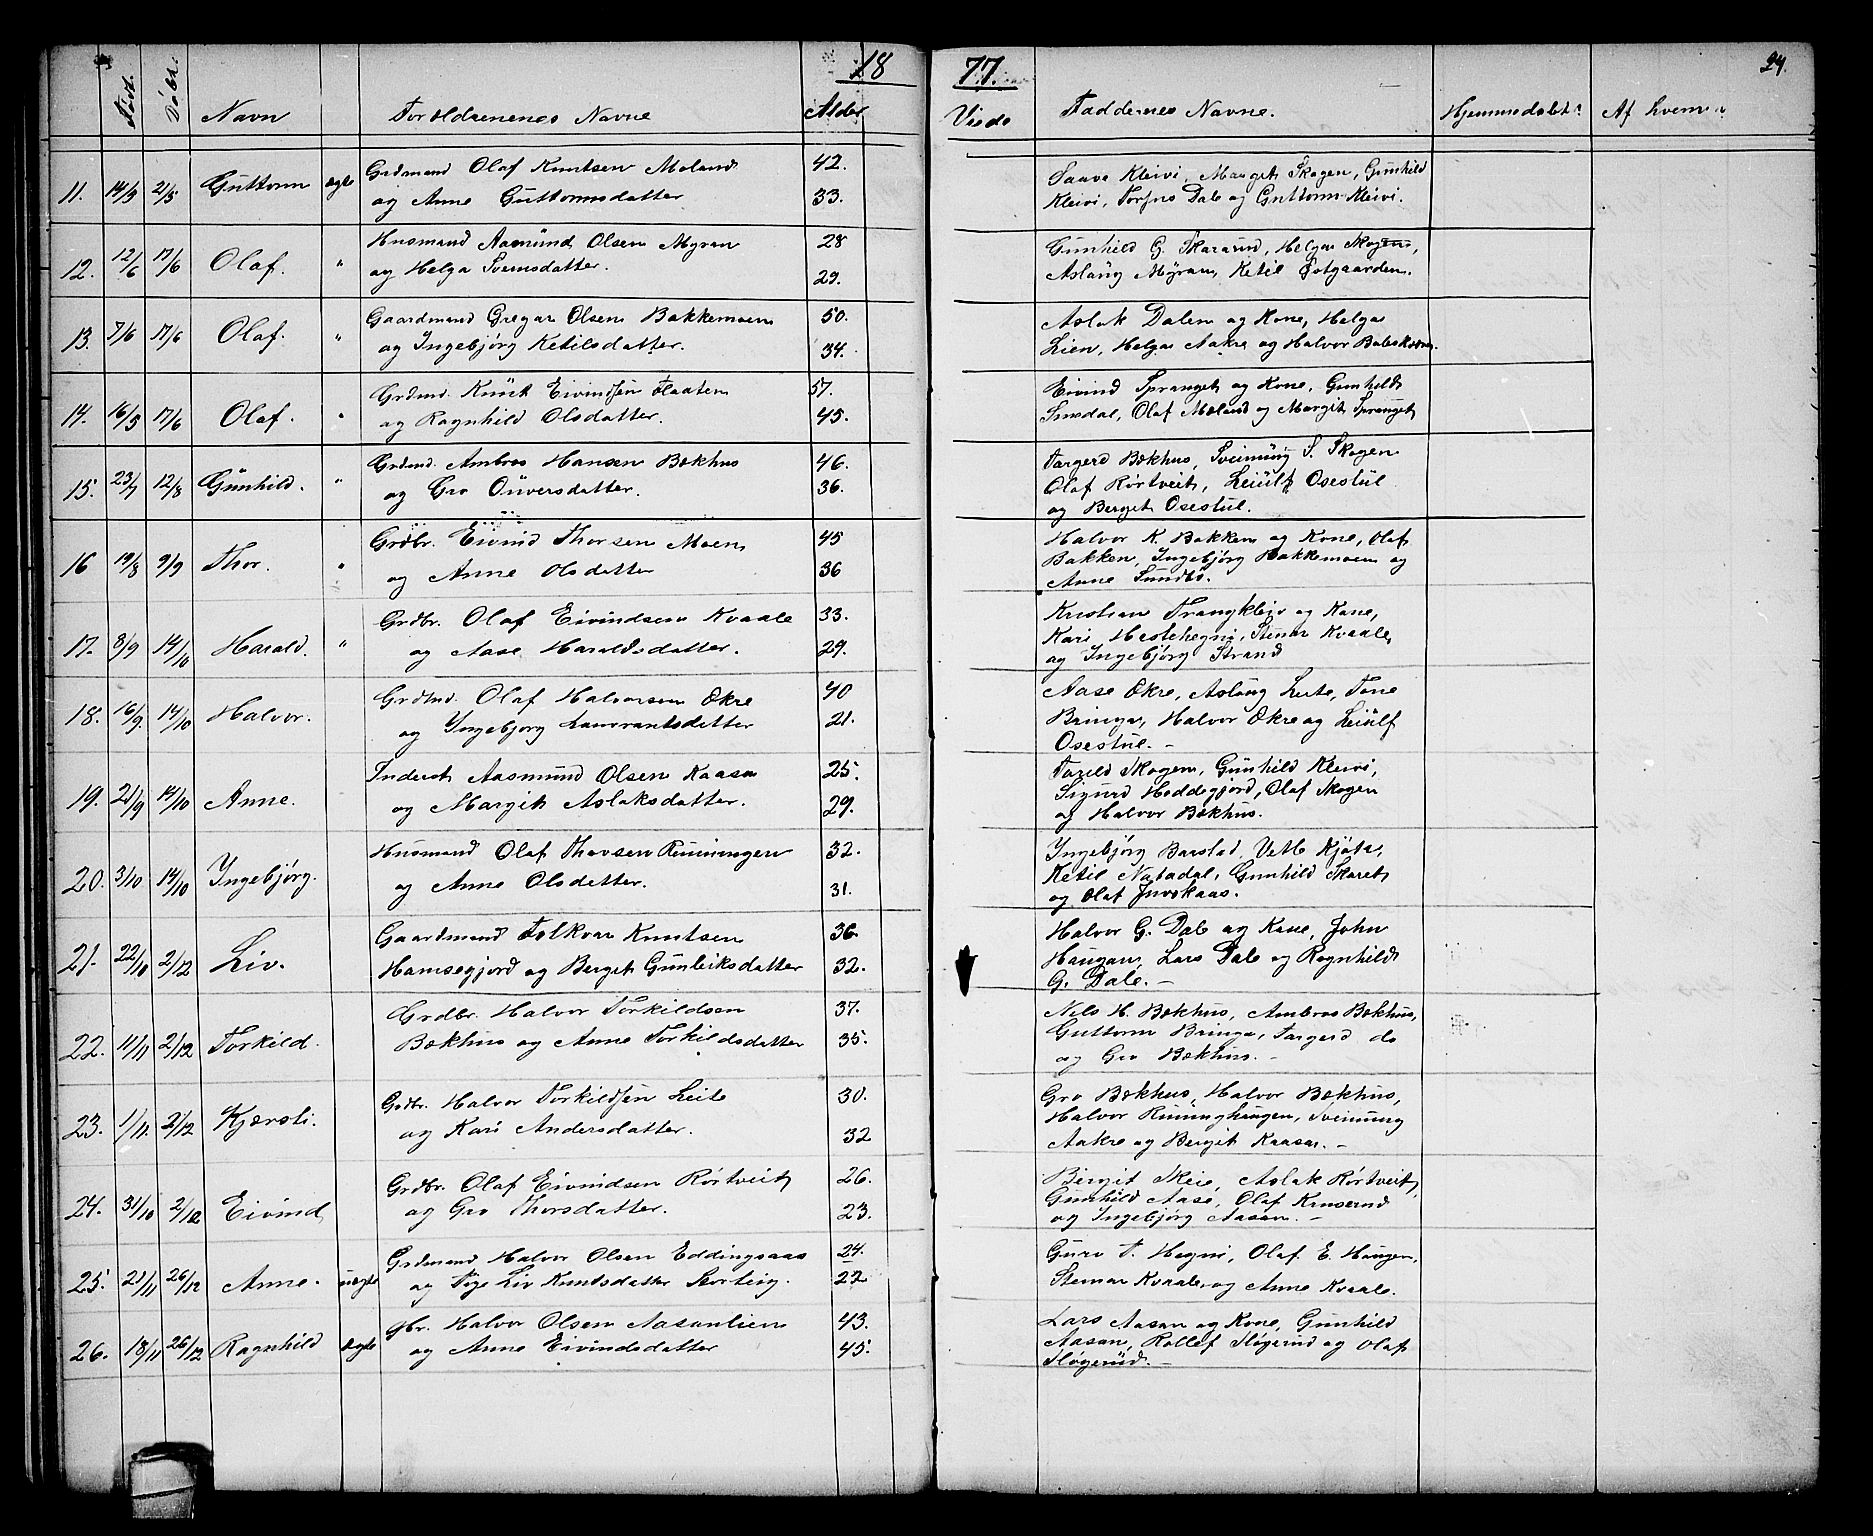 18 77. 24.
Født. Döbt. Navn Forældrenenes Navne Alder Viede Faddernes Navne. Hjemmedøbt Af hvem
11. 14/3 21/5 Guttorm ægte Grdmand Olaf Knutsen Moland 42. Saava Kleivi, Marget Skogen, Gunhild
og Anne Guttormsdatter 33. Kleivi, Torjus Dale og Guttorm Kleivi.
12. 12/6 17/6 Olaf. " Husmand Aasmund Olsen Myran 28 Gunhild G. Skarasud, Helga Skogen,
og Helga Svensdatter. 29. Aslaug Myran, Ketil Østgaarden.
13. 7/6 17/6 Olaf. " Gaardmand Gregar Olsen Bakkemoen 50. Aslak Dalen og Kone, Helga
og Ingebjørg Ketilsdatter. 34. Lien, Helga Aakre og Halvor
14. 16/5 17/6 Olaf. " Grdmd. Knut Eivindsen Flaaten 57. Eivind Spranget og Kone, Gunhild
og Ragnhild Olsdatter. 45. Olaf Moland og Margit Spranget
15. 23/7 12/8 Gunhild. " Grdmd. Ambros Hansen Bækhus 46. Targerd Bækhus, Sveinung S. Skogen
og Gro Ouversdatter. 36. Olaf Rörtveit, Leiulf Osestul
og Berget Osestul.
16 19/8 9/9 Thor. " Grdbr. Eivind Thorsen Moen 45 Halvor K. Bakken og Kone, Olaf
og Anne Olsdatter 36 Bakken, Ingebjörg Bakkemoen og
Anne Sundbö.
17. 8/9 14/10 Harald. " Grdbr. Olaf Eivindsen Kvaale 33. Kristian Trangkleiv og Kone,
og Aase Haraldsdatter. 29. Kari Hestehegni, Stenar Kvaale,
og Ingebjørg Strand
18. 16/9. 14/10 Halvor. Grdmd. Olaf Halvorsen Økre 40 Aase Økre, Aslaug Leite, Tone
og Ingebjorg Laurantsdatter 21. Bringa, Halvor Økre og Leiulf
Osestul. -
19. 21/9 14/10 Anne. Inderst Aasmund Olsen Kaasa 25. Torild Skogen, Gunhild Kleivi,
og Margit Aslaksdatter. 29. Sigurd Heddegjord, Olaf Skogen
og Halvor Bækhus.
20. 3/10 14/10 Ingebjørg. Husmand Olaf Thorsen Runningen 32. Ingebjörg Baastad, Vetle Kjøta,
og Anne Olsdatter. 31. Ketil Natadal, Gunhild Skaret
og Olaf Juvskaas.
21. 22/10 2/12 Liv. Gaardmand Folkvar Knutsen 36. Halvor G. Dale og Kone, John
Hamsegjord og Berget Gunleiksdatter 32. Haugan, Lars Dale og Ragnhild
G. Dale. -
22. 11/11 2/12 Torkild. Grdbr. Halvor Torkildsen 37. Nils H. Bækhus, Ambros Bækhus,
Bækhus og Anne Torkildsdatter 35. Guttorm Bringa, Targerd do
og Gro Bækhus. -
23. 1/11. 2/12 Kjersti. Grdbr. Halvor Torkildsen Leite 30. Gro Bækhus, Halvor Bækhus,
og Kari Andersdatter. 32 Halvor Runinghaugen, Sveinung
Aakre og Bergit Kaasa. -
24. 31/10 2/12 Eivind Grdbr. Olaf Eivindsen Rörtveit 26. Birgit Meie, Aslak Rörtveit,
og Gro Thorsdatter. 23. Gunhild Aase, Olaf Kaaserud
og Ingebjörg Aasan. -
25. 21/11 26/12 Anne. uægte Grdmand Halvor Olsen Eddingsaas 24. Guro T. Hegni, Olaf E. Haugen,
og Pige Liv Knutsdatter Storteig. 22 Stenar Kvaale, og Anne Kvaale.
26. 18/11 26/12 Ragnhild Ægte Gbr. Halvor Olsen Aasanlien 43. Lars Aasan og Kone, Gunhild
og Anne Eivindsdatter 45. Aasan, Rollef Flögerud og Olaf
Flögerud. -